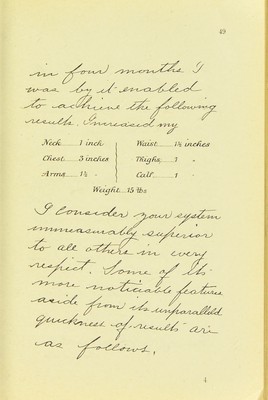 49
in four months I
was by it enabled
to achieve the following
results. Increased my
Neck 1 inch Waist 1½ inches
Chest 5 inches Thighs 3 "
Arms 1½ " Calf 1 "
Weight 15 lbs
I consider your system
immeasurably superior
to all others in every
respect. Some of its
more noticeable features
aside from its unparalleled
quickness of results are
as follows.
4